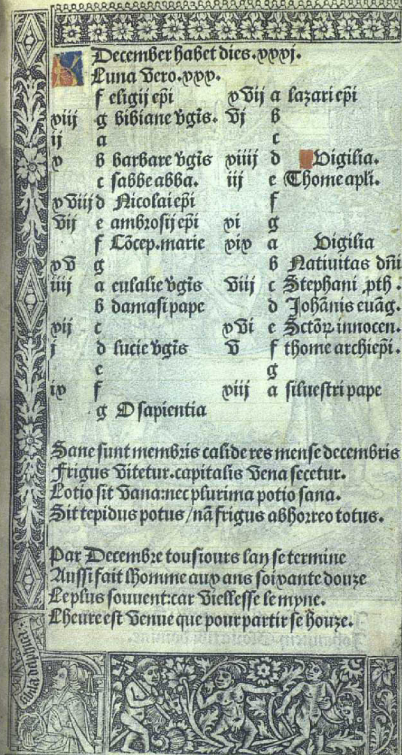 December habet dies. xxxj.
Luna vero. xxx.
f eligij ep̄i
xiij g bibiane v̄gīs.
ij a
x b barbare v̄gīs
c sabbe abba.
xviij d Nicolai ep̄i
vij e ambrosij ep̄i
f Cōcep. marie
xv g
iiij a eulalie v̄gīs
b damasi pape
xij c
j d lucie v̄gīs
e
ix f
g O sapientia
xvij a lazari ep̄i
vj b
c
xiiij d Vigilia.
iij e Thome apli.
f
xi g
xix a Vigilia
b Nativitas dn̄i
viij c Stephani pth.
d Johānis euāg.
xvi e Sctōꝝ innocen.
v f thome archiep̄i.
g
xiij a siluestri pape
Sane sunt membris calide res mense decembris
Frigus vitetur. capitalis vena secetur.
Lotio sit vana: nec plurima potio sana.
Sit tepidus potus / nā frigus abhorreo totus.
Par Decembre tousiours lan se termine
Aussi fait lhomme aux ans soixante douze
Le plus souuent: car viellesse le myne.
Lheure est venue que pour partir se houze.